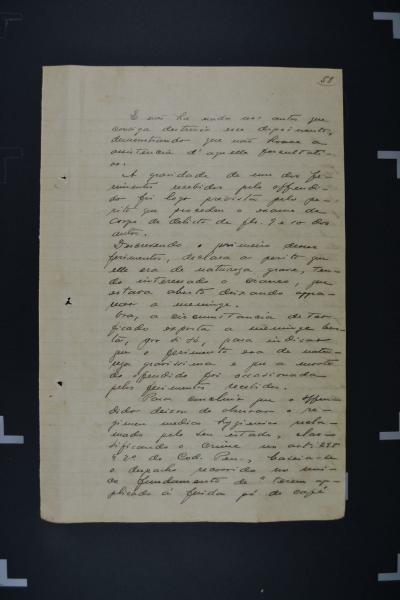 58
E não ha nada nos autos que
consiga destruir esse depoimento,
demonstrando que não houve a
assistencia d'aquelle facultati-
vo.
A gravidade de um dos fe-
rimentos recebidos pelo offendi-
do foi logo prevista pelo pe-
rito que procedeu o exame de
corpo de delicto de fls. 9 e 10 dos
autos.
Descrevendo o primeiro desses
ferimentos, declara o perito que
elle era de natureza grave, ten-
do interessado o craneo, que
estava aberto deixando appa-
recer a meninge.
Ora, a circumstancia de ter
ficado exposta a meninge bas-
ta, por si só, para indicar
que o ferimento era de natu-
reza gravissima e que a morte
do offendido foi occasionada
pelos ferimentos recebidos.
Para concluir que o offen-
dido deixou de observar o re-
gimen medico hygienico recla-
mado pelo seu estado, clas-
sificando o crime no art. 295
§ 2º do Cod. Pen., baseia-se
o despacho recorrido no uni-
co fundamento de "terem ap-
plicado á ferida pó de café